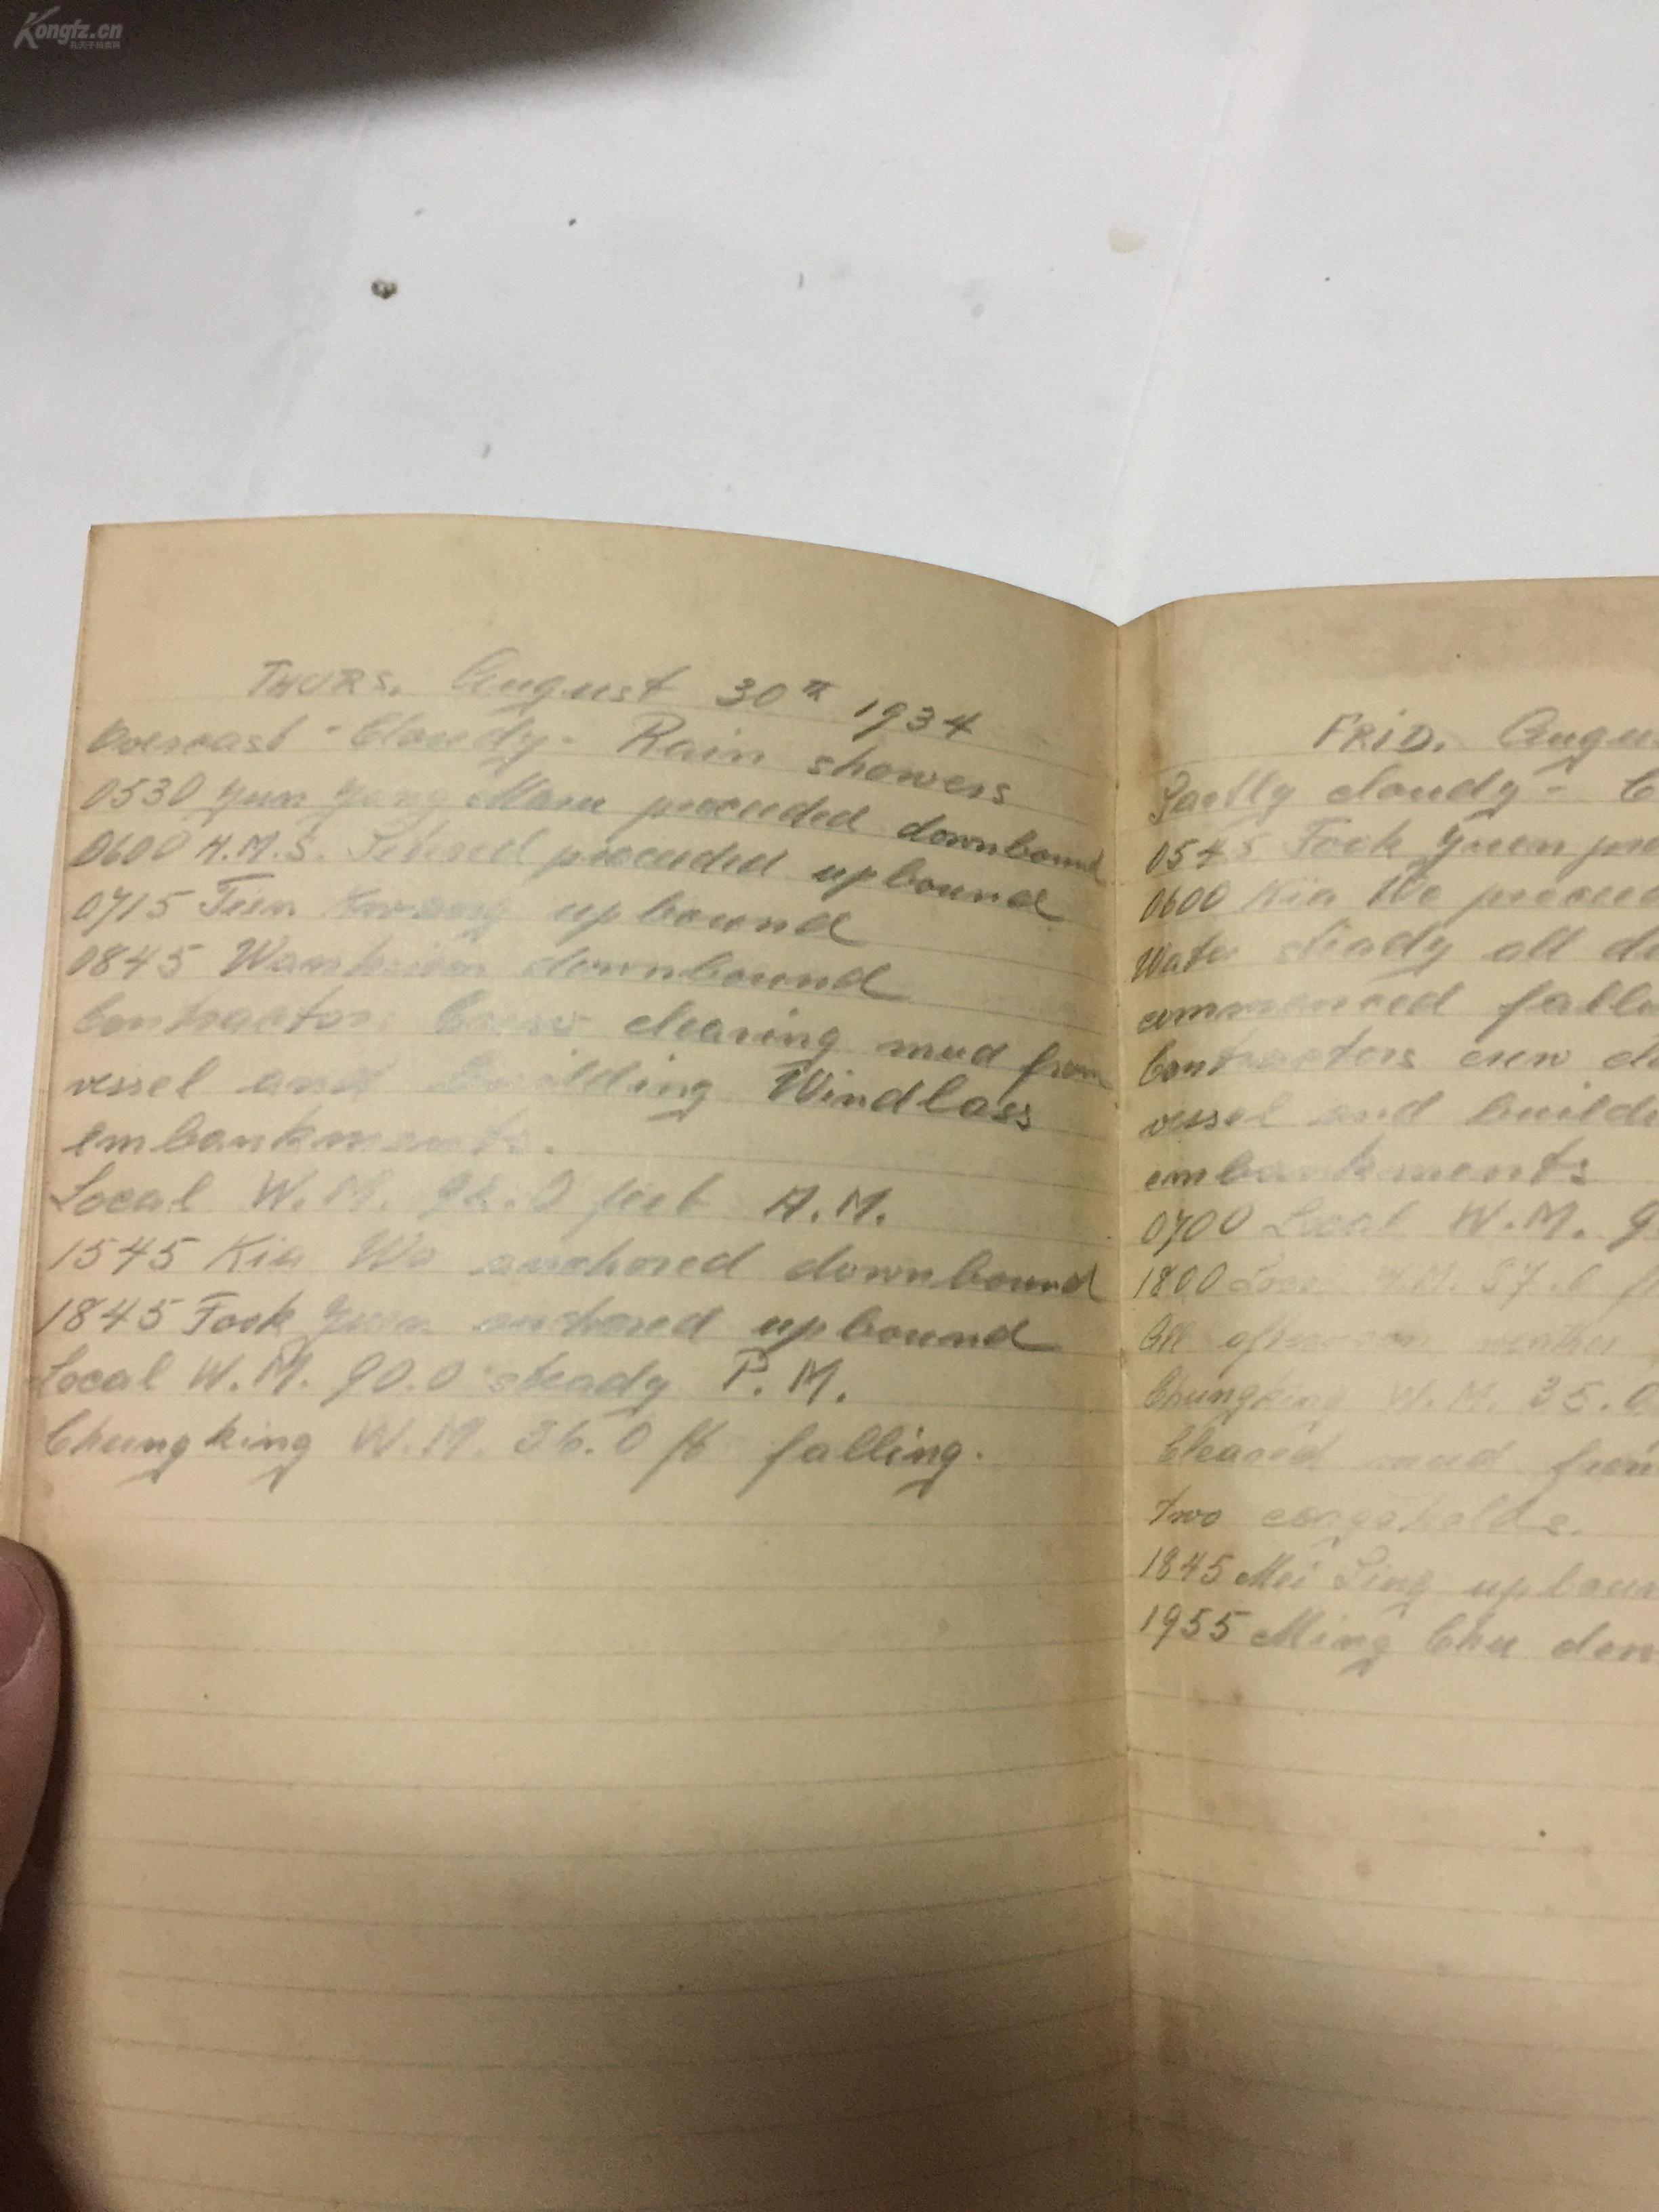 Kongfz.cn
THURS. August 30th 1934
Overcast - Cloudy - Rain showers
0530 Yun Yang Maru proceeded downbound
0600 H.M.S. proceeded upbound
0715 upbound
0845 downbound
Contractors Crew clearing mud from
vessel and building Windlass
embankments.
Local W.M. feet A.M.
1545 Kia Wo anchored downbound
1845 Fook Yuen anchored upbound
Local W.M. 90.0 steady P.M.
Chungking W.M. 36.0 ft falling.
FRID. Augu
Partly cloudy - C
0545 Fook Yuen pro
0600 Kia Wo proceed
Water steady all da
commenced falli
Contractors crew cl
vessel and build
embankments
0700 Local W.M. 9
1800 Local W.M.
All afternoon weather
Chungking W.M. 35.0
Cleared mud from
two
1845 Mei Ling upboun
1955 Ming Chu dow